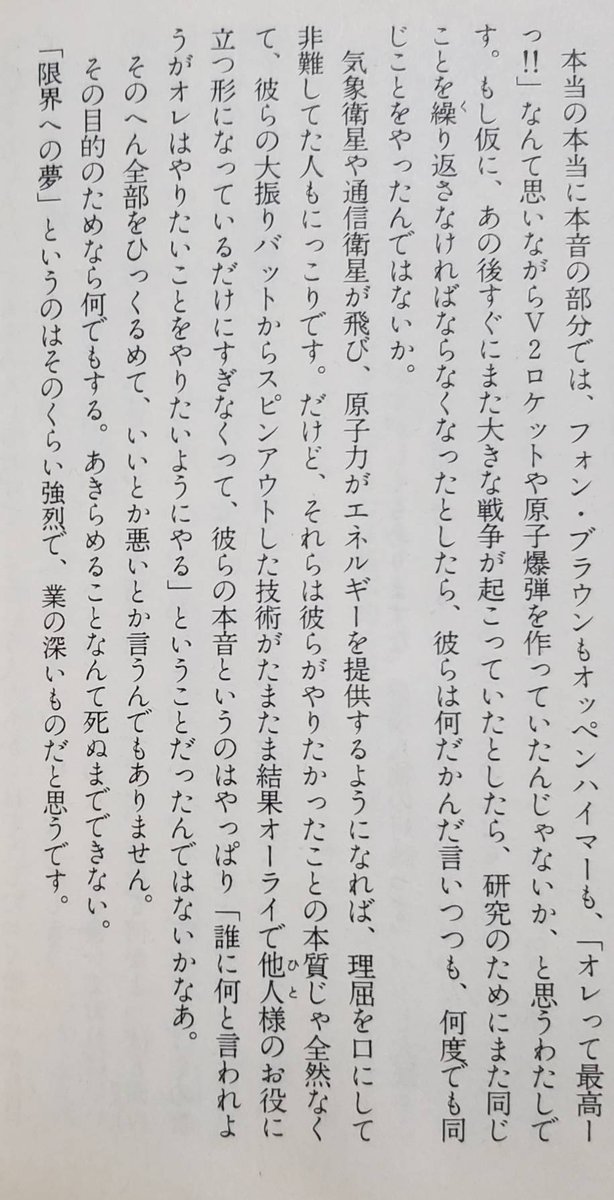 本当の本当に本音の部分では、フォン・ブラウンもオッペンハイマーも、「オレって最高ー
っ!!」なんて思いながらV2ロケットや原子爆弾を作っていたんじゃないか、と思うわたしで
す。もし仮に、あの後すぐにまた大きな戦争が起こっていたとしたら、研究のためにまた同じ
ことを繰り返さなければならなくなったとしたら、彼らは何だかんだ言いつつも、何度でも同
じことをやったんではないか。
気象衛星や通信衛星が飛び、原子力がエネルギーを提供するようになれば、理屈を口にして
非難してた人もにっこりです。だけど、それらは彼らがやりたかったことの本質じゃ全然なく
て、彼らの大振りバットからスピンアウトした技術がたまたま結果オーライで他人様のお役に
立つ形になっているだけにすぎなくって、彼らの本音というのはやっぱり「誰に何と言われよ
うがオレはやりたいことをやりたいようにやる」ということだったんではないかなあ。
そのへん全部をひっくるめて、いいとか悪いとか言うんでもありません。
その目的のためなら何でもする。あきらめることなんて死ぬまでできない。
「限界への夢」というのはそのくらい強烈で、業の深いものだと思うです。